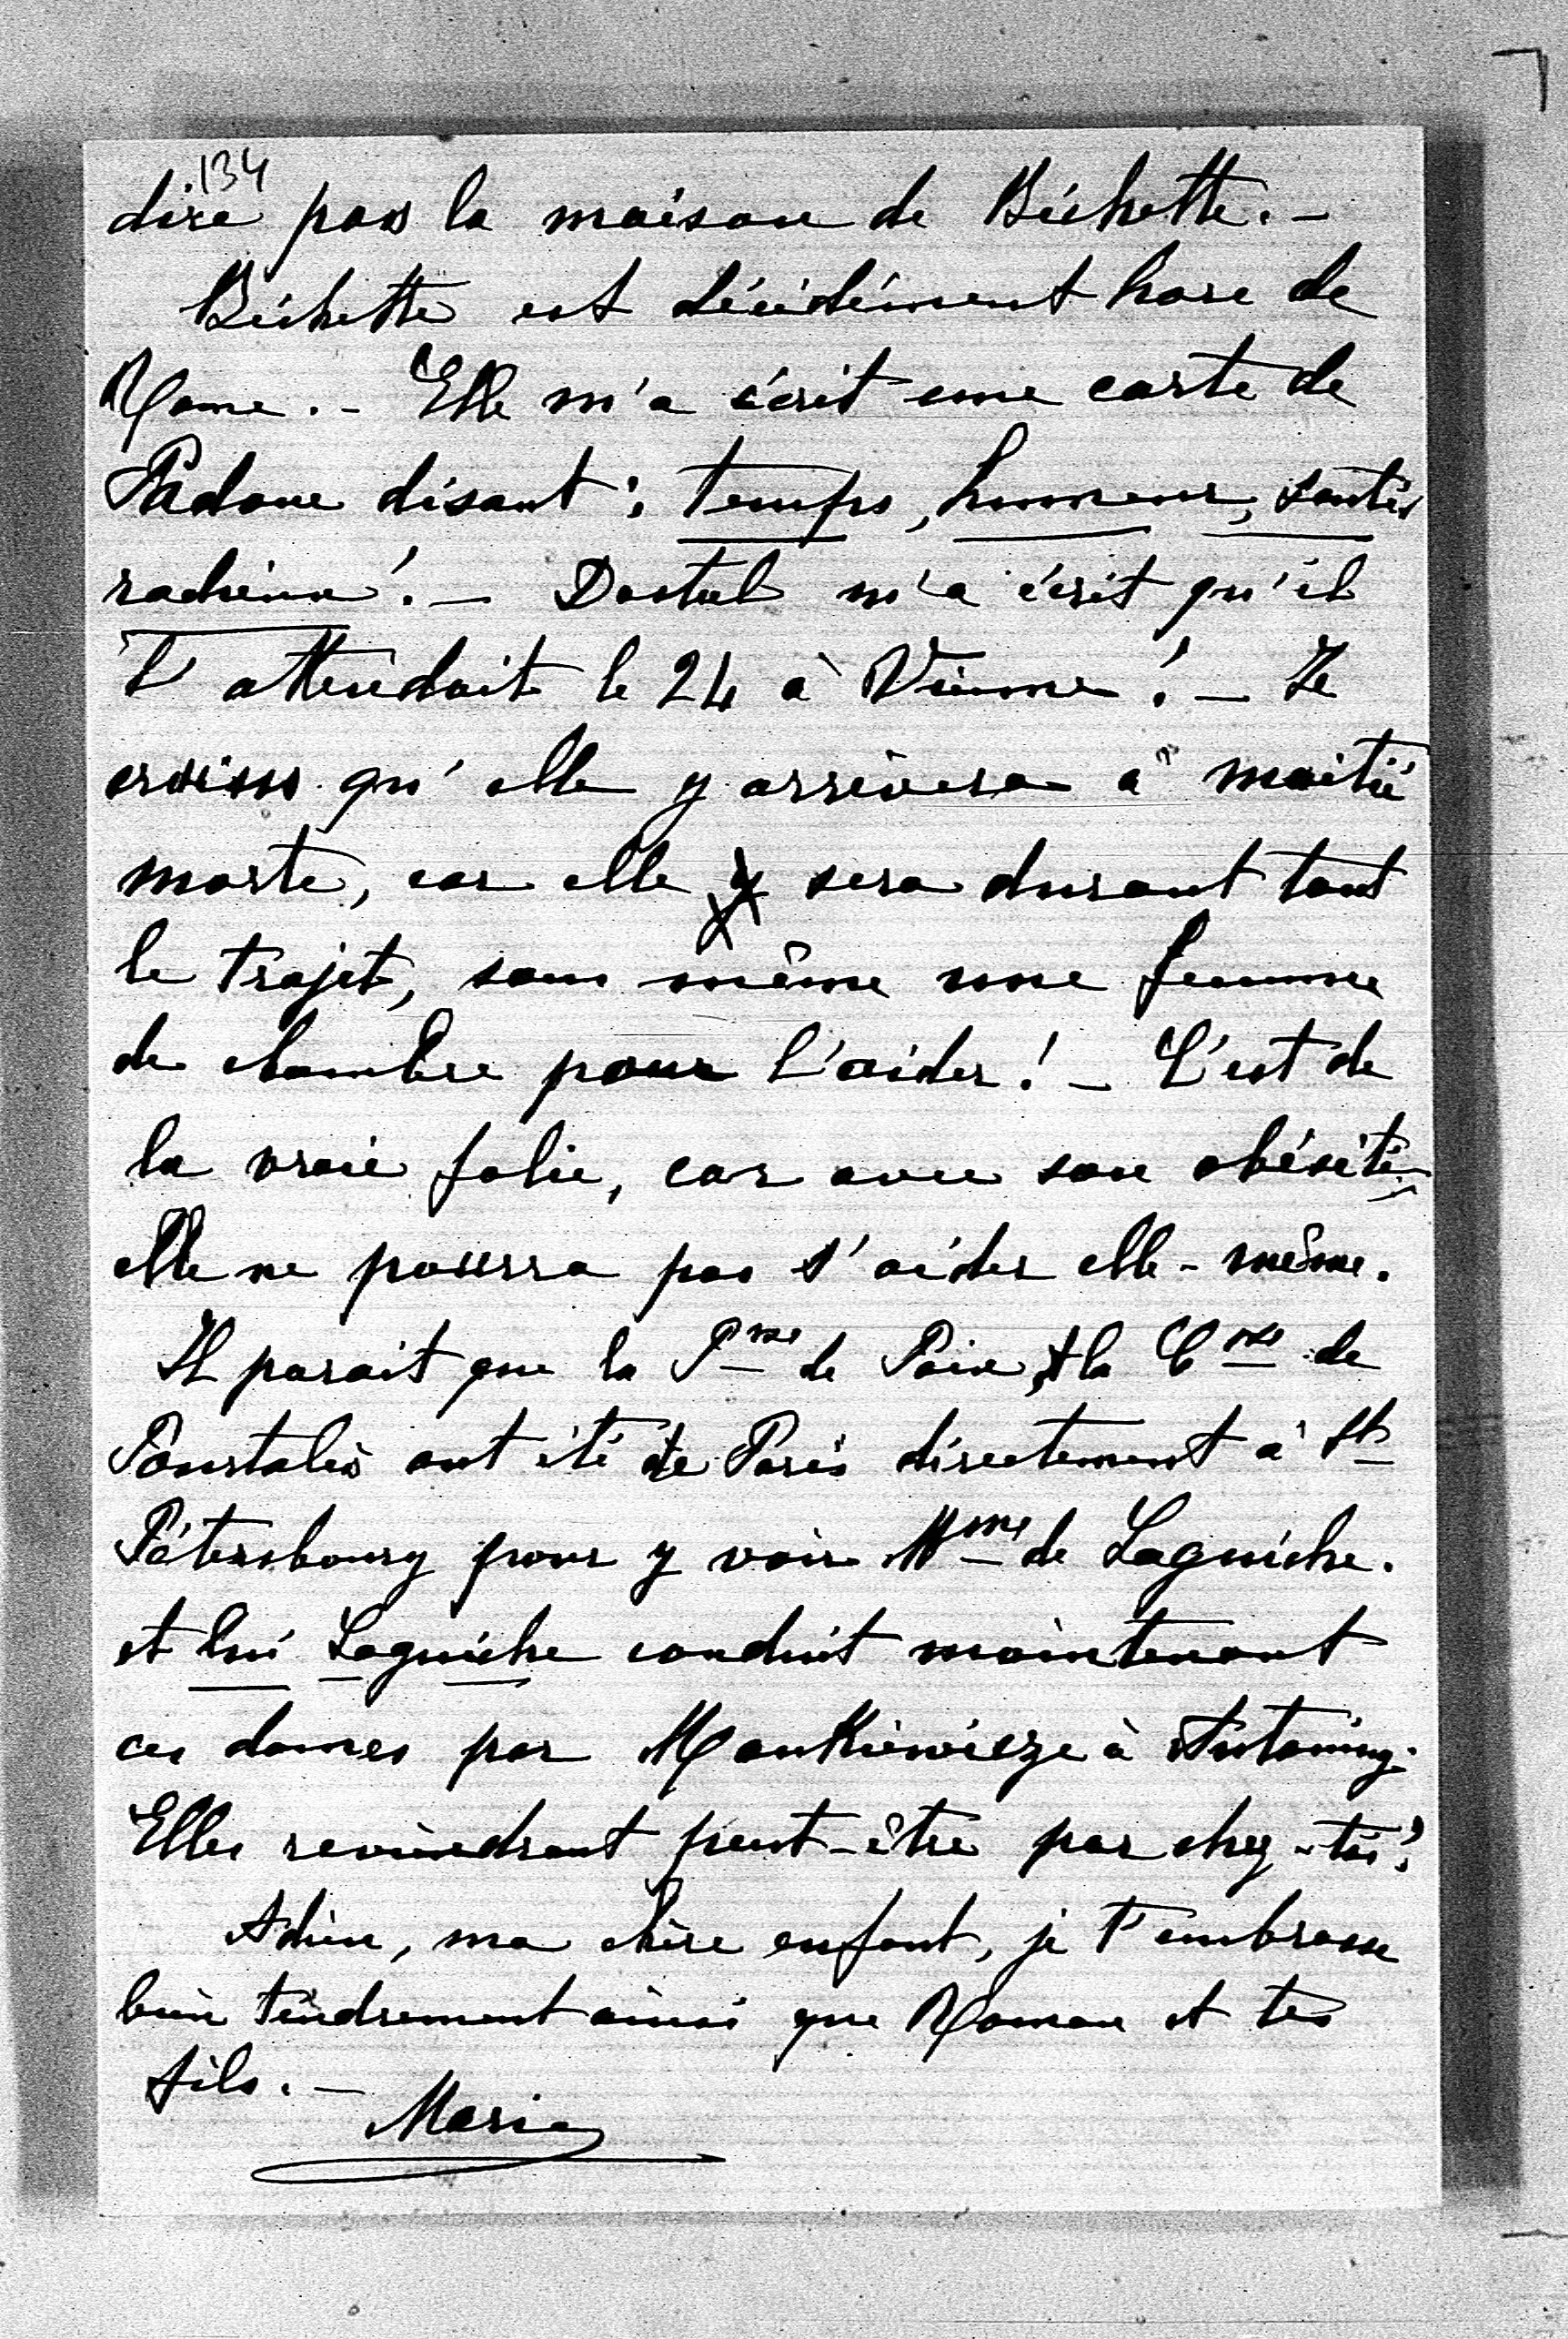 134
dire pas la maison de Bichette. –
Bichette est décidément hors de
Rome. – Elle m'a écrit une carte de
Padoue disant : temps, humeur, santé
radieux ! – Dostal m'a écrit qu'il
l'attendait le 24 à Vienne ! – Je
crois qu'elle y arrivera à moitié
morte, car elle y sera durant tout
le trajet, sans même une femme
de chambre pour l'aider ! – C'est de
la vraie folie, car avec son obésité
elle ne pourra pas s'aider elle-même.
Il parait que la Psse de Poix, et la Csse de
Pourtalès ont été de Paris directement à St
Pétersbourg pour y voir Mme de Laguiche.
et lui Laguiche conduit maintenant
ces dames par Mankiewicze à Antoniny.
Elles reviendront peut-être par chez-toi ?
Adieu, ma chère enfant, je t'embrasse
bien tendrement ainsi que Roman et tes
fils. –
Marie